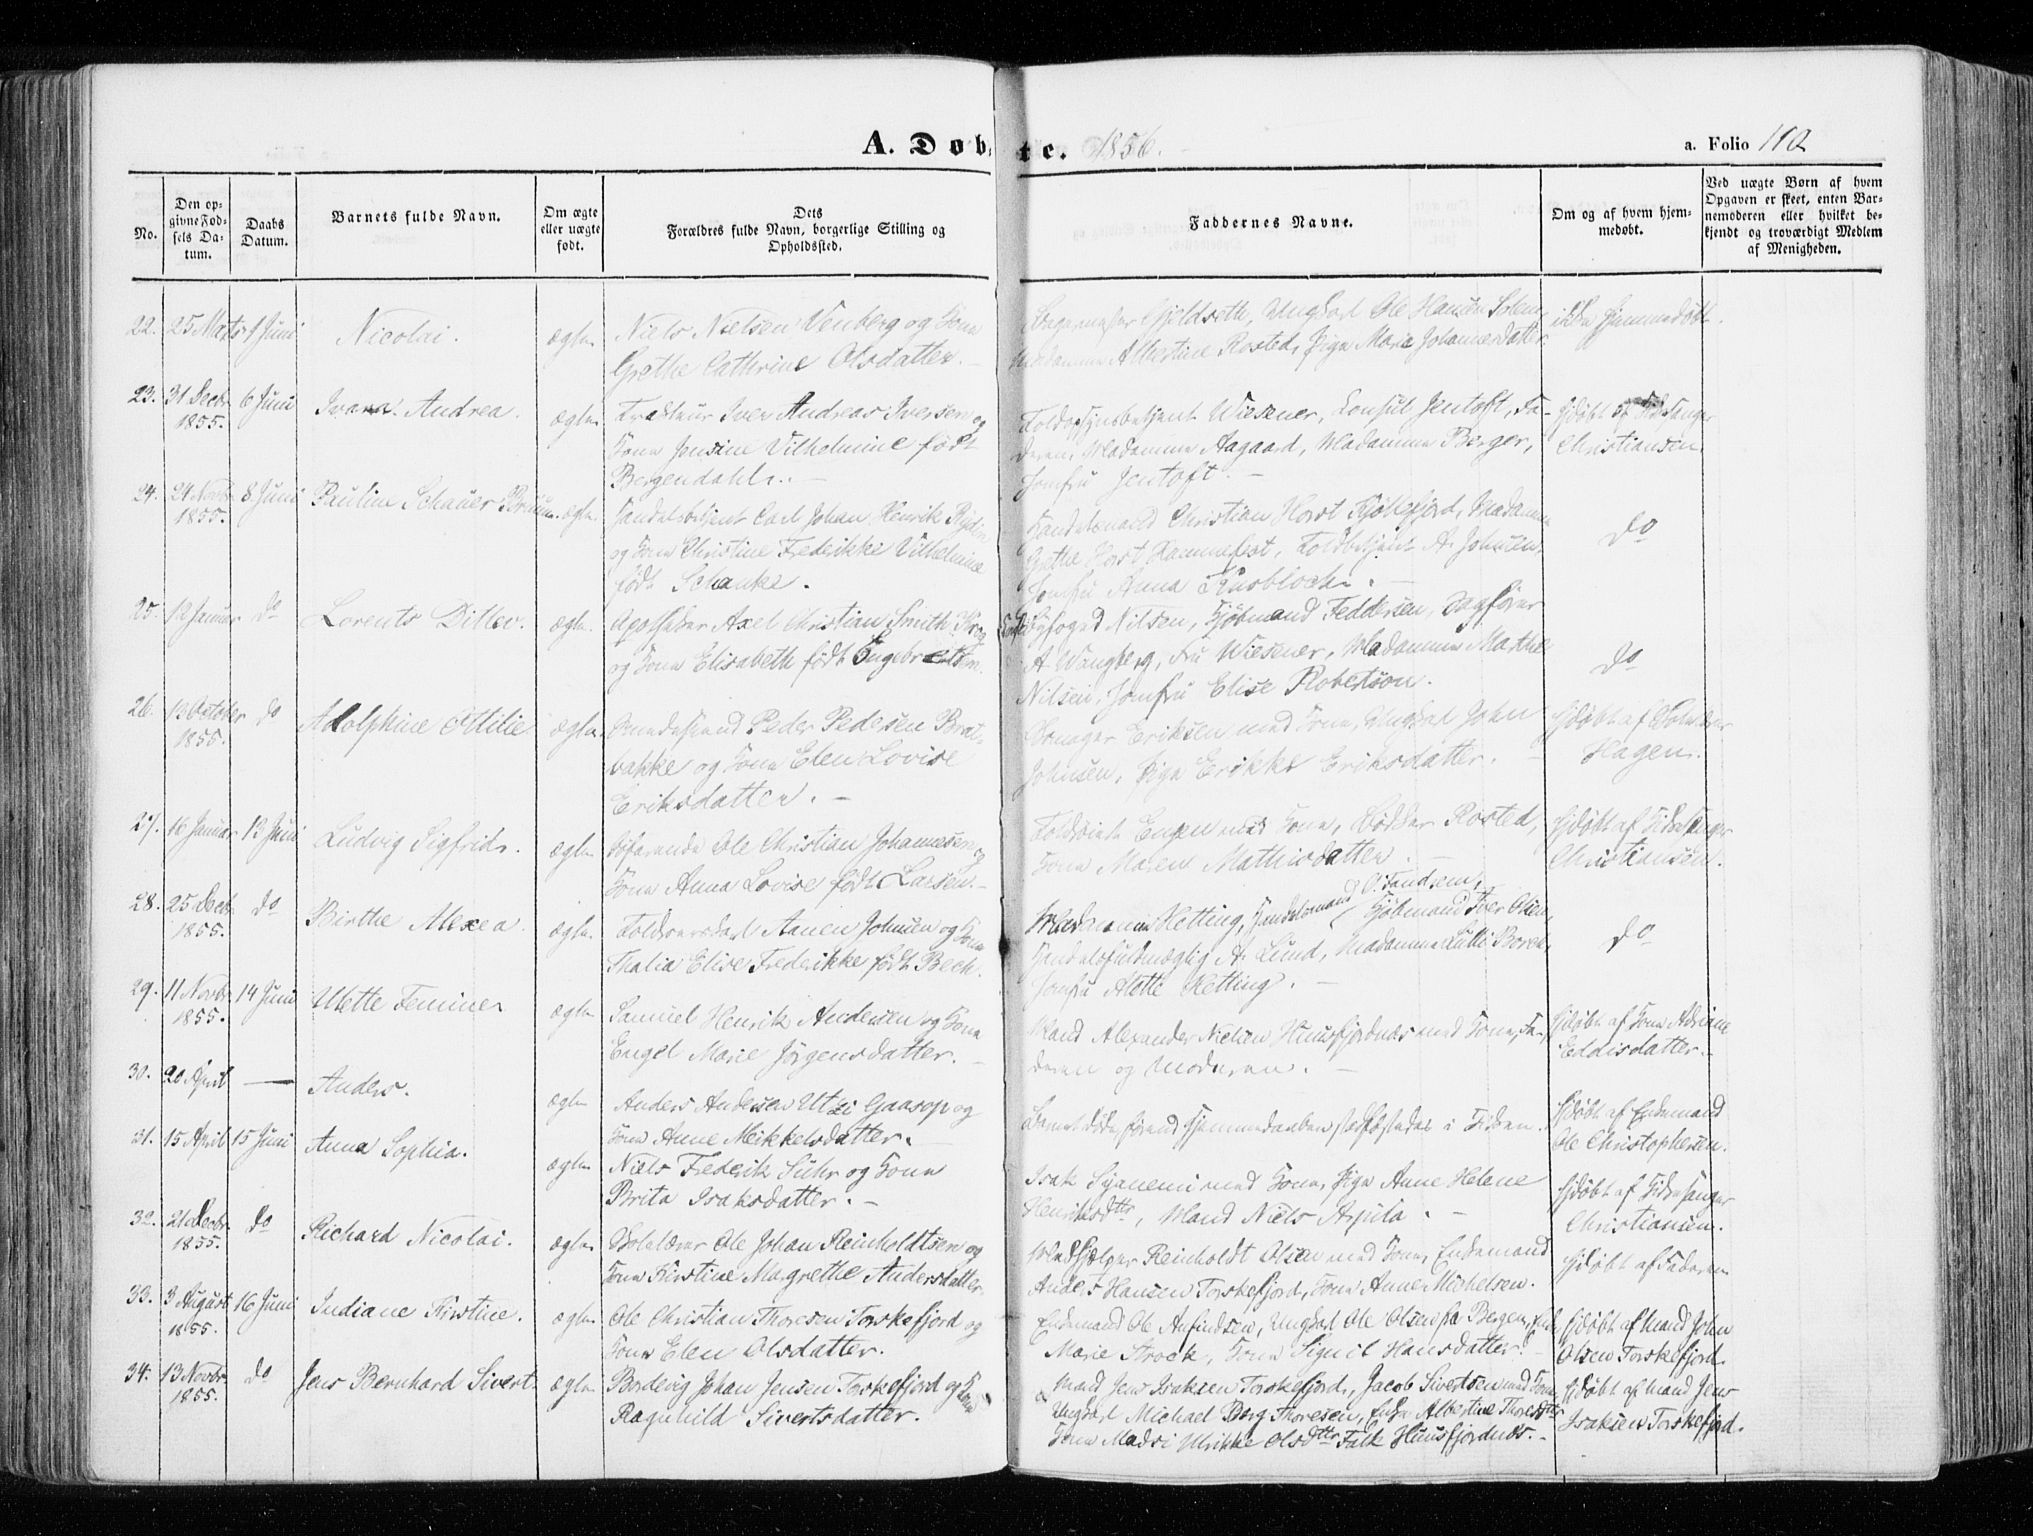 A. Døbte. 1856.
a. Folio 110
No.
Den opgivne Fødsels Datum.
Daabs Datum.
Barnets fulde Navn.
Om ægte eller uægte født.
Dets Forældres fulde Navn, borgerlige Stilling og Opholdssted.
Faddernes Navne.
Om og af hvem hjemmedøbt.
Ved uægte Børn af hvem Opgaven er skeet, enten Barnemoderen eller hvilket bekjendt og troværdigt Medlem af Menigheden.
22. 25 Marts 1 Juni Nicolai. ægte
Niels Nielsen Venberg og Kone
Grethe Cathrine Olsdatter.
Gjeldseth, Ungkarl Ole Hansen
Madamme Albertine Rosted, Pige Marie Johannesdatter
ikke hjemmedøbt.
23. 31 Decbr 1855. 6 Juni Ivara Andrea. ægte
Iver Andreas Iversen og
Kone Jensine Vilhelmine født
Bergendahl.
Toldopsynsbetjent Wiesener, Consul Jentoft, Fa-
deren, Madamme Aagaard, Madamme Berger,
Jomfru Jentoft.
hjdøbt af Kirkesanger
Christiansen.
24. 24 Novbr 1855. 8 Juni Pauline Schauer ægte.
Handelsbetjent Carl Johan Henrik
og Kone Christine Frederikke Vilhelmine
født Schanke.
Handelsmand Christian Horst Kjøllefjord, Madamme
Grethe Horst Hammerfest, Toldbetjent A. Johnsen,
Jomfru Anna Knobloch.
do
25. 12 Januar do Lorents Ditlev. ægte.
Apotheker Axel Christian Smith
og Kone Elisabeth født Engebretsen.
Byfoged Nilsen, Kjøbmand Feddersen, Sagfører
A Wangberg, Fru Wiesener, Madamme Marthe
Nilsen, Jomfru Elise Robertson.
do
26. 13 October 1855. do Adolphine Ottilie ægte.
Peder Pedersen Brat-
bakke og Kone Elen Lovise
Eriksdatter.
Eriksen med Kone, Ungkarl John
Johnsen, Pige Erikke Eriksdatter.
hjdøbt af
Hagen.
27. 16 Januar 13 Juni Ludvig Sigfrid. ægte
Søfarende Ole Christian Johannesen og
Kone Anna Lovise født Larsen.
Engen med Kone, Bødker Rosted,
Kone Maren Mathisdatter.
hjdøbt af Kirkesanger
Christiansen.
28. 25 Decbr 1855. do Birthe Alexea. ægte.
Toldroerskarl Aanen Johnsen og Kone
Thalia Elise Frederikke født Bech.
Madamme Ketting, Handelsmand O. Tandsem,
Kjøbmand Iver Olsen,
Handelsfuldmægtig A. Lund, Madamme Lulli Borch,
Jomfru Alette Ketting.
do
29. 11 Novbr 1855. 14 Juni Mette Femine. ægte
Samuel Henrik Andersen og Kone
Engel Marie Jørgensdatter.
Mand Alexander Nielsen Huusfjordnæs med Kone, Fa-
deren og Moderen.
hjdøbt af Kone Adriane
Eddisdatter.
30. 20 April — Anders. ægte
Anders Andersen Utzi Gaasop og
Kone Anne Mikkelsdatter.
Barnet døde førend Hjemmedaaben stadfæstedes i Kirken.
hjdøbt af Enkemand
Ole Christophersen.
31. 15 April 15 Juni Anna Sophia. ægte
Niels Frederik Suhr og Kone
Brita Isaksdatter.
Isak Sjanemi med Kone, Pige Anne Helene
Henriksdtr, Mand Niels Arpila.
hjdøbt af Kirkesanger
Christiansen.
32. 21 Decbr. 1855. do Richard Nicolai. ægte
Skolelærer Ole Johan Reinholdtsen og
Kone Kirstine Margrethe Andersdatter
Medhjelper Reinholdt Olsen med Kone, Enkemand
Anders Hansen Torskefjord, Kone Anne Michelsen.
hjdøbt af Faderen
33. 3 August 1855. 16 Juni Indiane Kirstine. ægte
Ole Christian Thoresen Torskefjord og
Kone Elen Olsdatter.
Enkemand Ole Anfindsen, Ungkarl Ole Olsen fra Bergen, Enke
Marie Strock, Kone Signil Hansdatter.
hjdøbt af Mand John
Olsen Torskefjord.
34. 13 Novbr 1855. do Jens Bernhard Sivert ægte.
Bordevig Johan Jensen Torskefjord og Kone
Ragnhild Sivertsdatter.
Mand Jens Isaksen Torskefjord, Jacob Sivertsen med Kone
Ungkarl Michael Borg Thoresen, Enke Albertine Thoresdtr
Kone Madsi Ulrikke Olsdtr Falk Huusfjordnæs.
hjdøbt af Mand Jens
Isaksen Torskefjord.